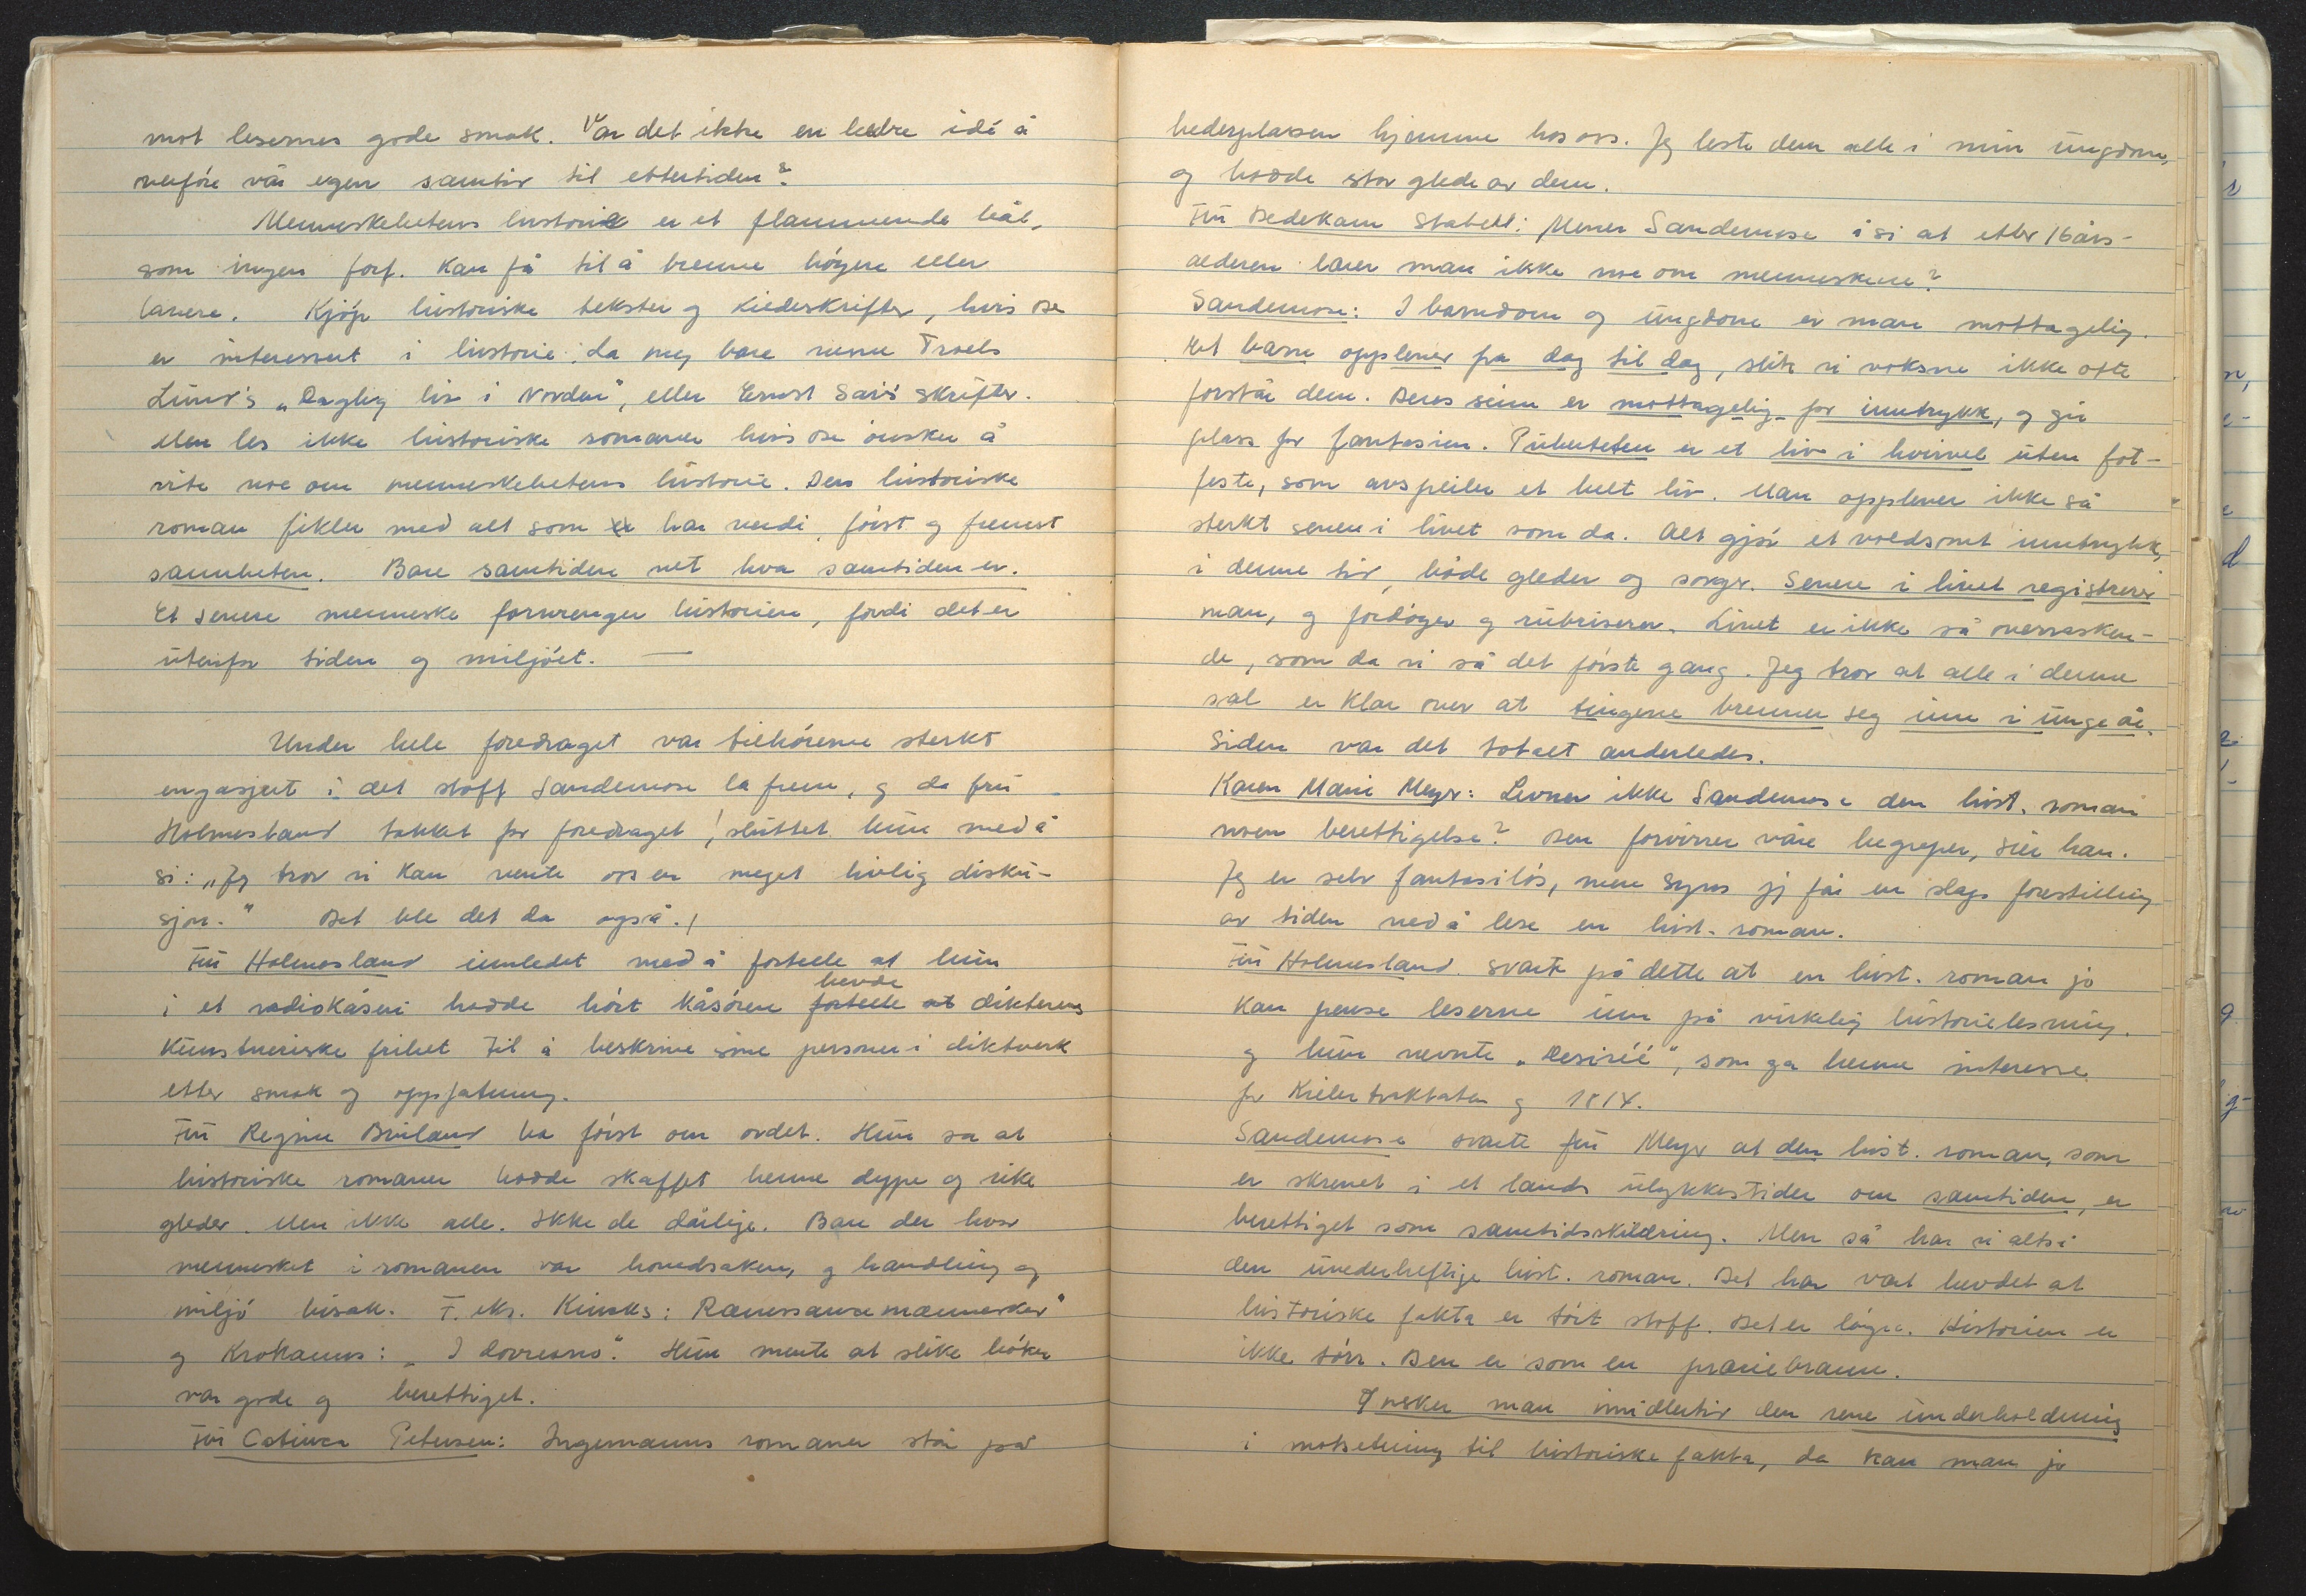 mot lesernes gode smak. Var det ikke en bedre idé å
overføre vår egen samtid til ettertiden?
Menneskehetens historie er et flammende bål,
som ingen forf. kan få til å brenne høyere eller
lavere. Kjøp historiske tekster og kildeskrifter, hvis De
er interessert i historie; da meg bare nevne Troels
Lund's „Daglig liv i Norden", eller Ernst Sars skrifter.
Men les ikke historiske romaner hvis De ønsker å
vite noe om menneskehetens historie. Den historiske
roman fikler med alt som har verdi, først og fremst
sannheten. Bare samtiden vet hva samtiden er.
Et senere menneske forvrenger historien, fordi det er
utenfor tiden og miljøet. —
Under hele foredraget var tilhørerne sterkt
engasjert i det stoff Sandemose la frem, og da fru
Holmesland takket for foredraget, sluttet hun med å
si: „Jeg tror vi kan vente oss en meget livlig disku-
sjon." Det ble det da også.
Fru Holmesland innledet med å fortelle at hun
i et radiokåseri hadde hørt kåsøren fortelle at hevde dikterens
kunstneriske frihet til å beskrive sine personer i diktverk
etter smak og oppfatning.
Fru Regine Bruland ba først om ordet. Hun sa at
historiske romaner hadde skaffet henne dype og rike
gleder. Men ikke alle. Ikke de dårlige. Bare der hvor
mennesket i romanen var hovedsaken, og handling og
miljø bisak. F. eks. Kincks: Renessansemennesker"
og Krohanns: „I Dovresno". Hun mente at slike bøker
var gode og berettiget.
Fru Catinca Petersen: Ingemanns romaner står på
hedersplassen hjemme hos oss. Jeg leste dem alle i min ungdom,
og hadde stor glede av dem.
Fru Dedekam Stabell: Mener Sandemose å si at etter 16 års-
alderen lærer man ikke noe om menneskene?
Sandemose: I barndom og ungdom er man mottagelig.
Det barn opplever fra dag til dag, slik vi voksne ikke ofte
forstår dem. Deres sinn er mottagelig for inntrykk, og gir
plass for fantasien. Puberteten er et liv i hvirvel uten fot-
feste, som avspeiler et helt liv. Man opplever ikke så
sterkt senere i livet som da. Alt gjør et voldsomt inntrykk,
i denne tid, både gleder og sorger. Senere i livet registrerer
man, og fordøyer og rubriserer. Livet er ikke så overrasken-
de, som da vi så det første gang. Jeg tror at alle i denne
sal er klar over at tingene brenner seg inn i unge år.
Siden var det totalt anderledes.
Karen Marie Meyer: Levner ikke Sandemose den hist. roman
noen berettigelse? Den forvirrer våre begreper, sier han.
Jeg er selv fantasiløs, men syns jeg får en slags forestilling
av tiden ved å lese en hist. roman.
Fru Holmesland svarte på dette at en hist. roman jo
kan pense leserne inn på virkelig historielesning.
og hun nevnte „Desirée", som ga henne interesse
for Kielertraktaten og 1814.
Sandemose svarte fru Meyer at den hist. roman, som
er skrevet i et lands ulykkestider om samtiden, er
berettiget som samtidsskildring. Men så har vi altså
den uvederheftige hist. roman. Det har vært hevdet at
historiske fakta er tørt stoff. Det er løgn. Historien er
ikke tørr. Den er som en præriebrann.
Ønsker man imidlertid den rene underholdning
i motsetning til historiske fakta, da kan man jo